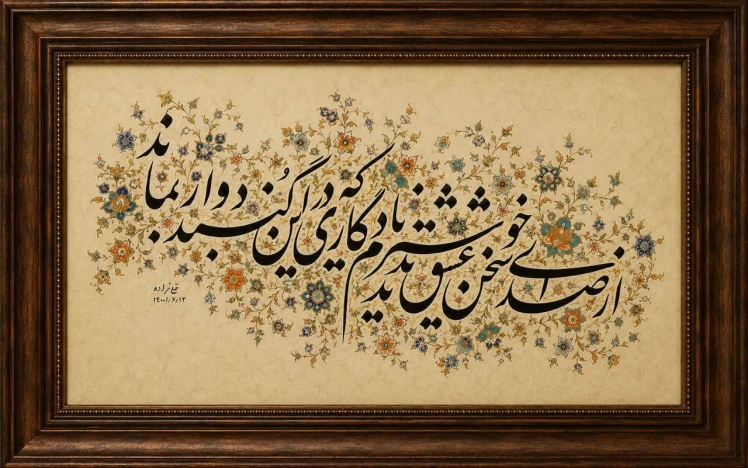 از صدای سخن عشق ندیدم خوشتر
یادگاری که در این گنبد دوار بماند
۱۴۰۰/۶/۱۲